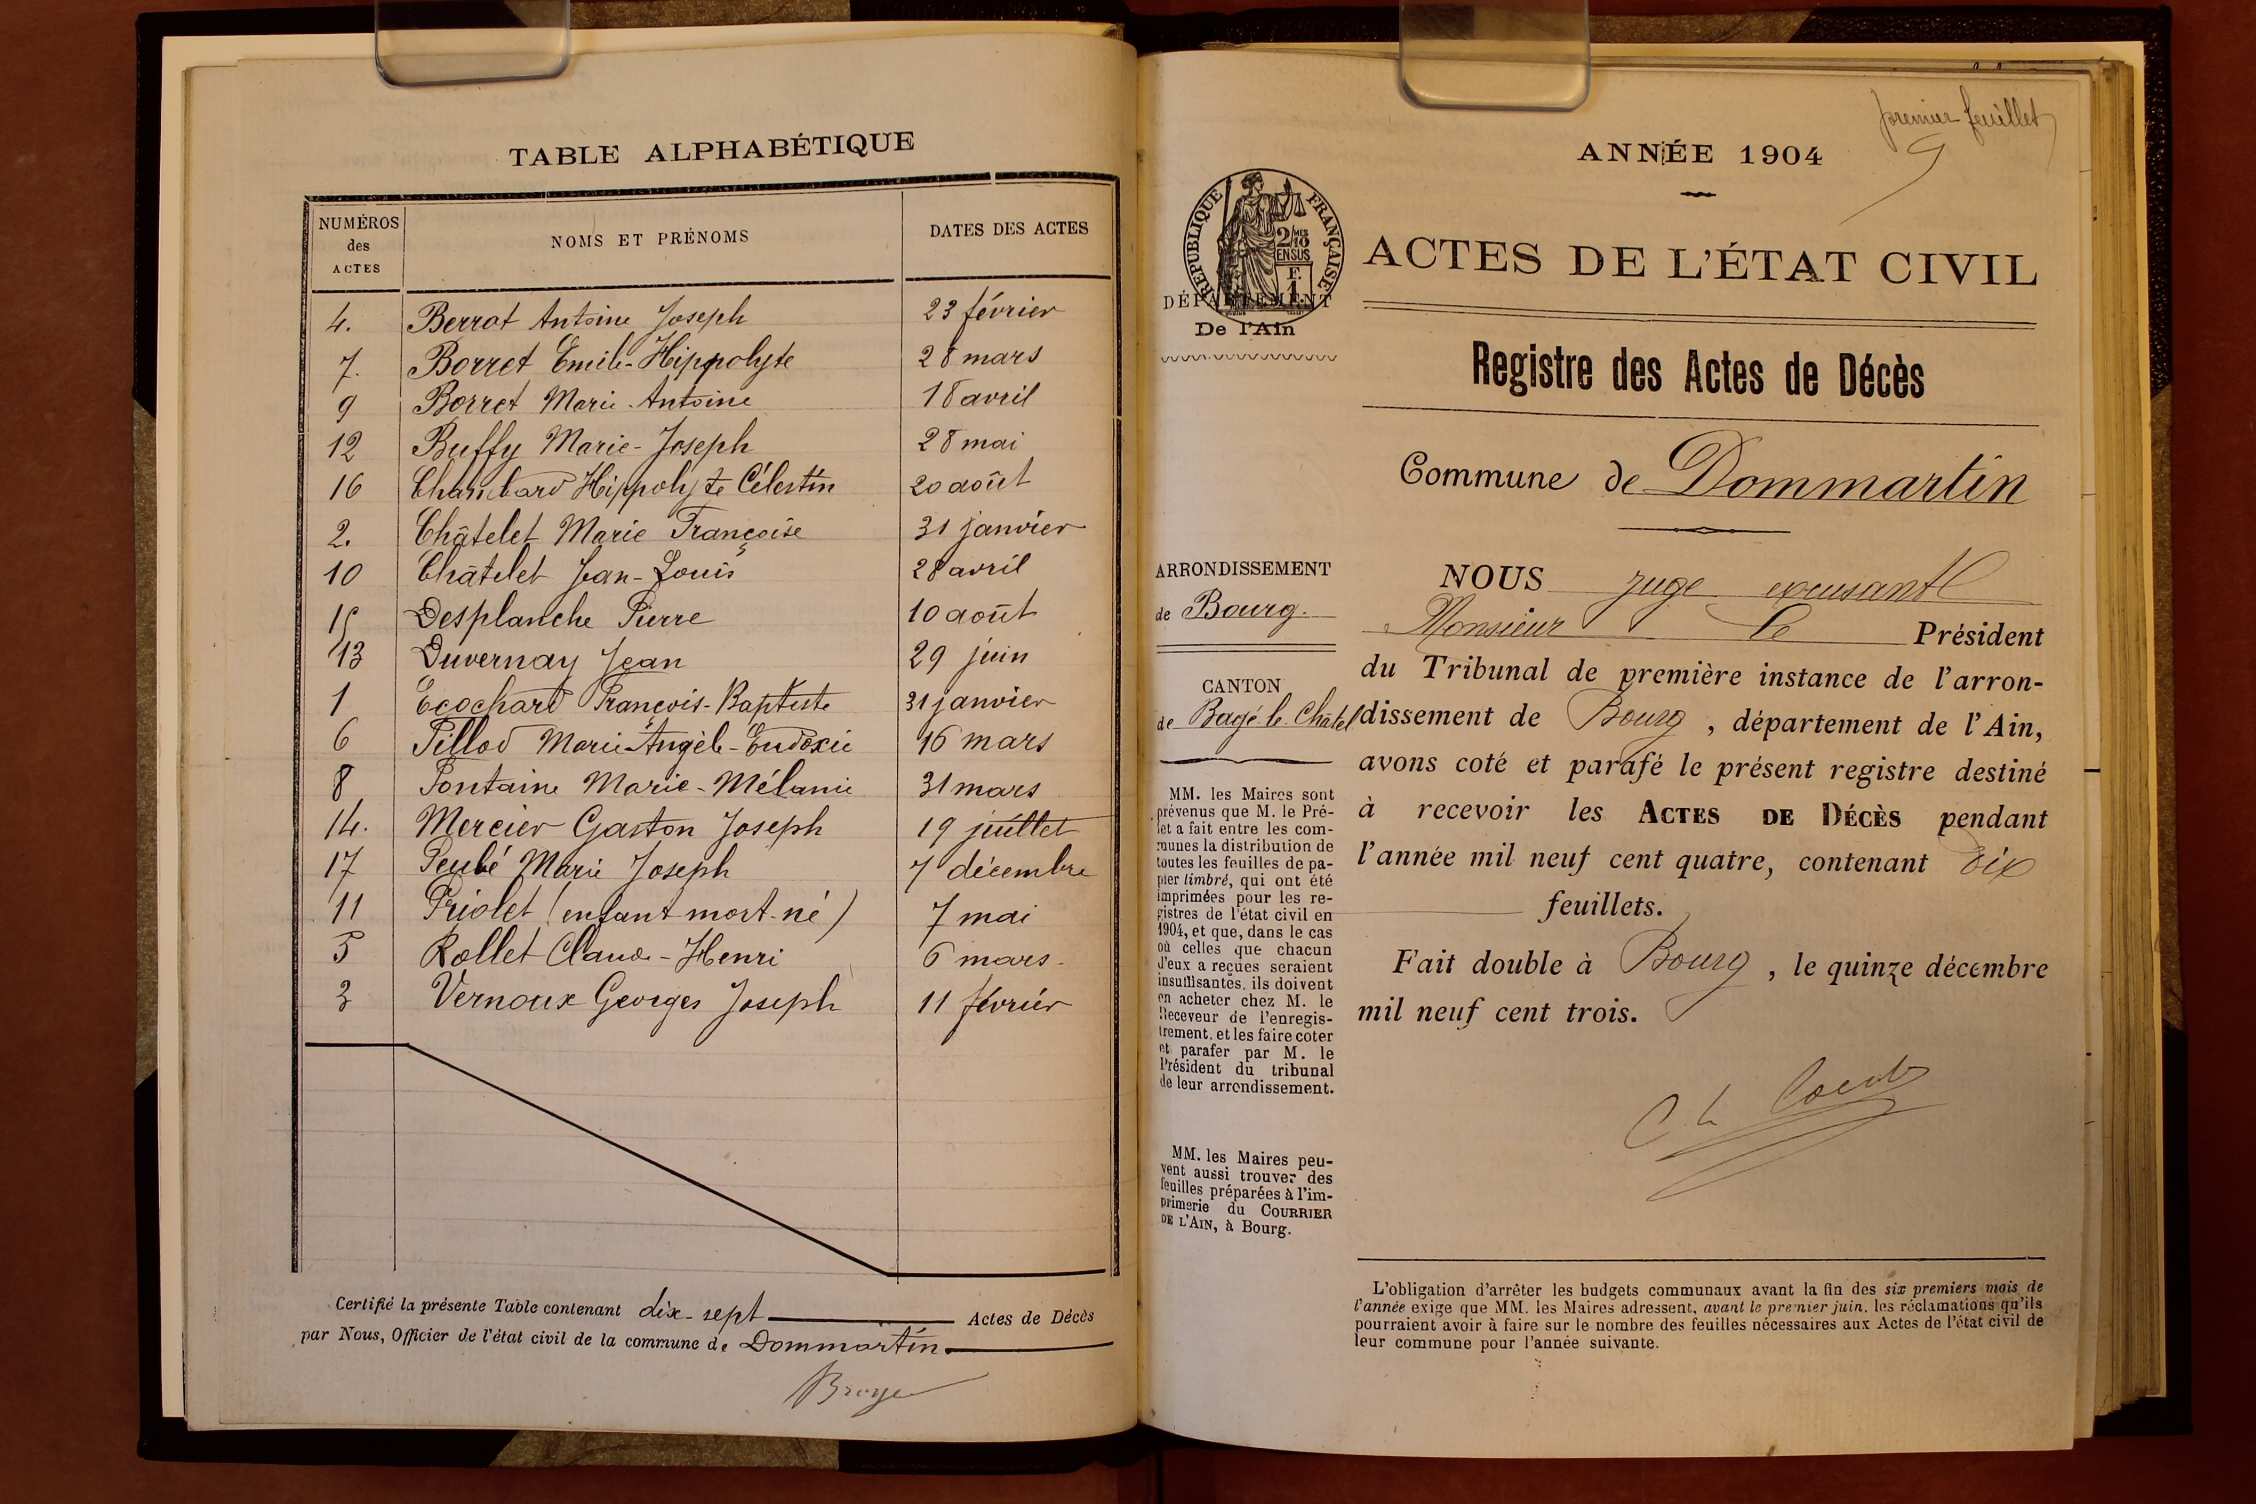 TABLE ALPHABÉTIQUE
NUMÉROS des ACTES NOMS ET PRÉNOMS DATES DES ACTES
4. Berrot Antoine Joseph 23 février
7. Borret Emile-Hippolyte 28 mars
9 Borret Marie-Antoine 18 avril
12 Buffy Marie-Joseph 28 mai
16 Chambard Hippolyte Célestin 20 août
2. Châtelet Marie Françoise 31 janvier
10 Châtelet Jean-Louis 28 avril
15 Desplanche Pierre 10 août
13 Duvernay Jean 29 juin
1 Ecochard François-Baptiste 31 janvier
6 Fillod Marie-Angèle-Eudoxie 16 mars
8 Fontaine Marie-Mélanie 31 mars
14. Mercier Gaston Joseph 19 juillet
17 Peubé Marie Joseph 7 décembre
11 Priolet (enfant mort-né) 7 mai
5 Rollet Claude-Henri 6 mars
3 Vernoux Georges Joseph 11 février
Certifié la présente Table contenant dix-sept Actes de Décès
par Nous, Officier de l'état civil de la commune de Dommartin.
Broyer
premier feuillet
ANNÉE 1904
RÉPUBLIQUE FRANÇAISE
2/10 MES
EN SUS
F.
1
ACTES DE L'ÉTAT CIVIL
DÉPARTEMENT
De l'Ain
Registre des Actes de Décès
Commune de Dommartin
ARRONDISSEMENT
de Bourg.
CANTON
de Bagé-le-Châtel
MM. les Maires sont
prévenus que M. le Pré-
fet a fait entre les com-
munes la distribution de
toutes les feuilles de pa-
pier timbré, qui ont été
imprimées pour les re-
gistres de l'état civil en
1904, et que, dans le cas
où celles que chacun
d'eux a reçues seraient
insuffisantes, ils doivent
en acheter chez M. le
Receveur de l'enregis-
trement, et les faire coter
et parafer par M. le
Président du tribunal
de leur arrondissement.
MM. les Maires peu-
vent aussi trouver des
feuilles préparées à l'im-
primerie du COURRIER
DE L'AIN, à Bourg.
NOUS juge excusant
Monsieur le Président
du Tribunal de première instance de l'arron-
dissement de Bourg, département de l'Ain,
avons coté et parafé le présent registre destiné
à recevoir les ACTES DE DÉCÈS pendant
l'année mil neuf cent quatre, contenant dix
feuillets.
Fait double à Bourg, le quinze décembre
mil neuf cent trois.
L'obligation d'arrêter les budgets communaux avant la fin des six premiers mois de
l'année exige que MM. les Maires adressent, avant le premier juin, les réclamations qu'ils
pourraient avoir à faire sur le nombre des feuilles nécessaires aux Actes de l'état civil de
leur commune pour l'année suivante.